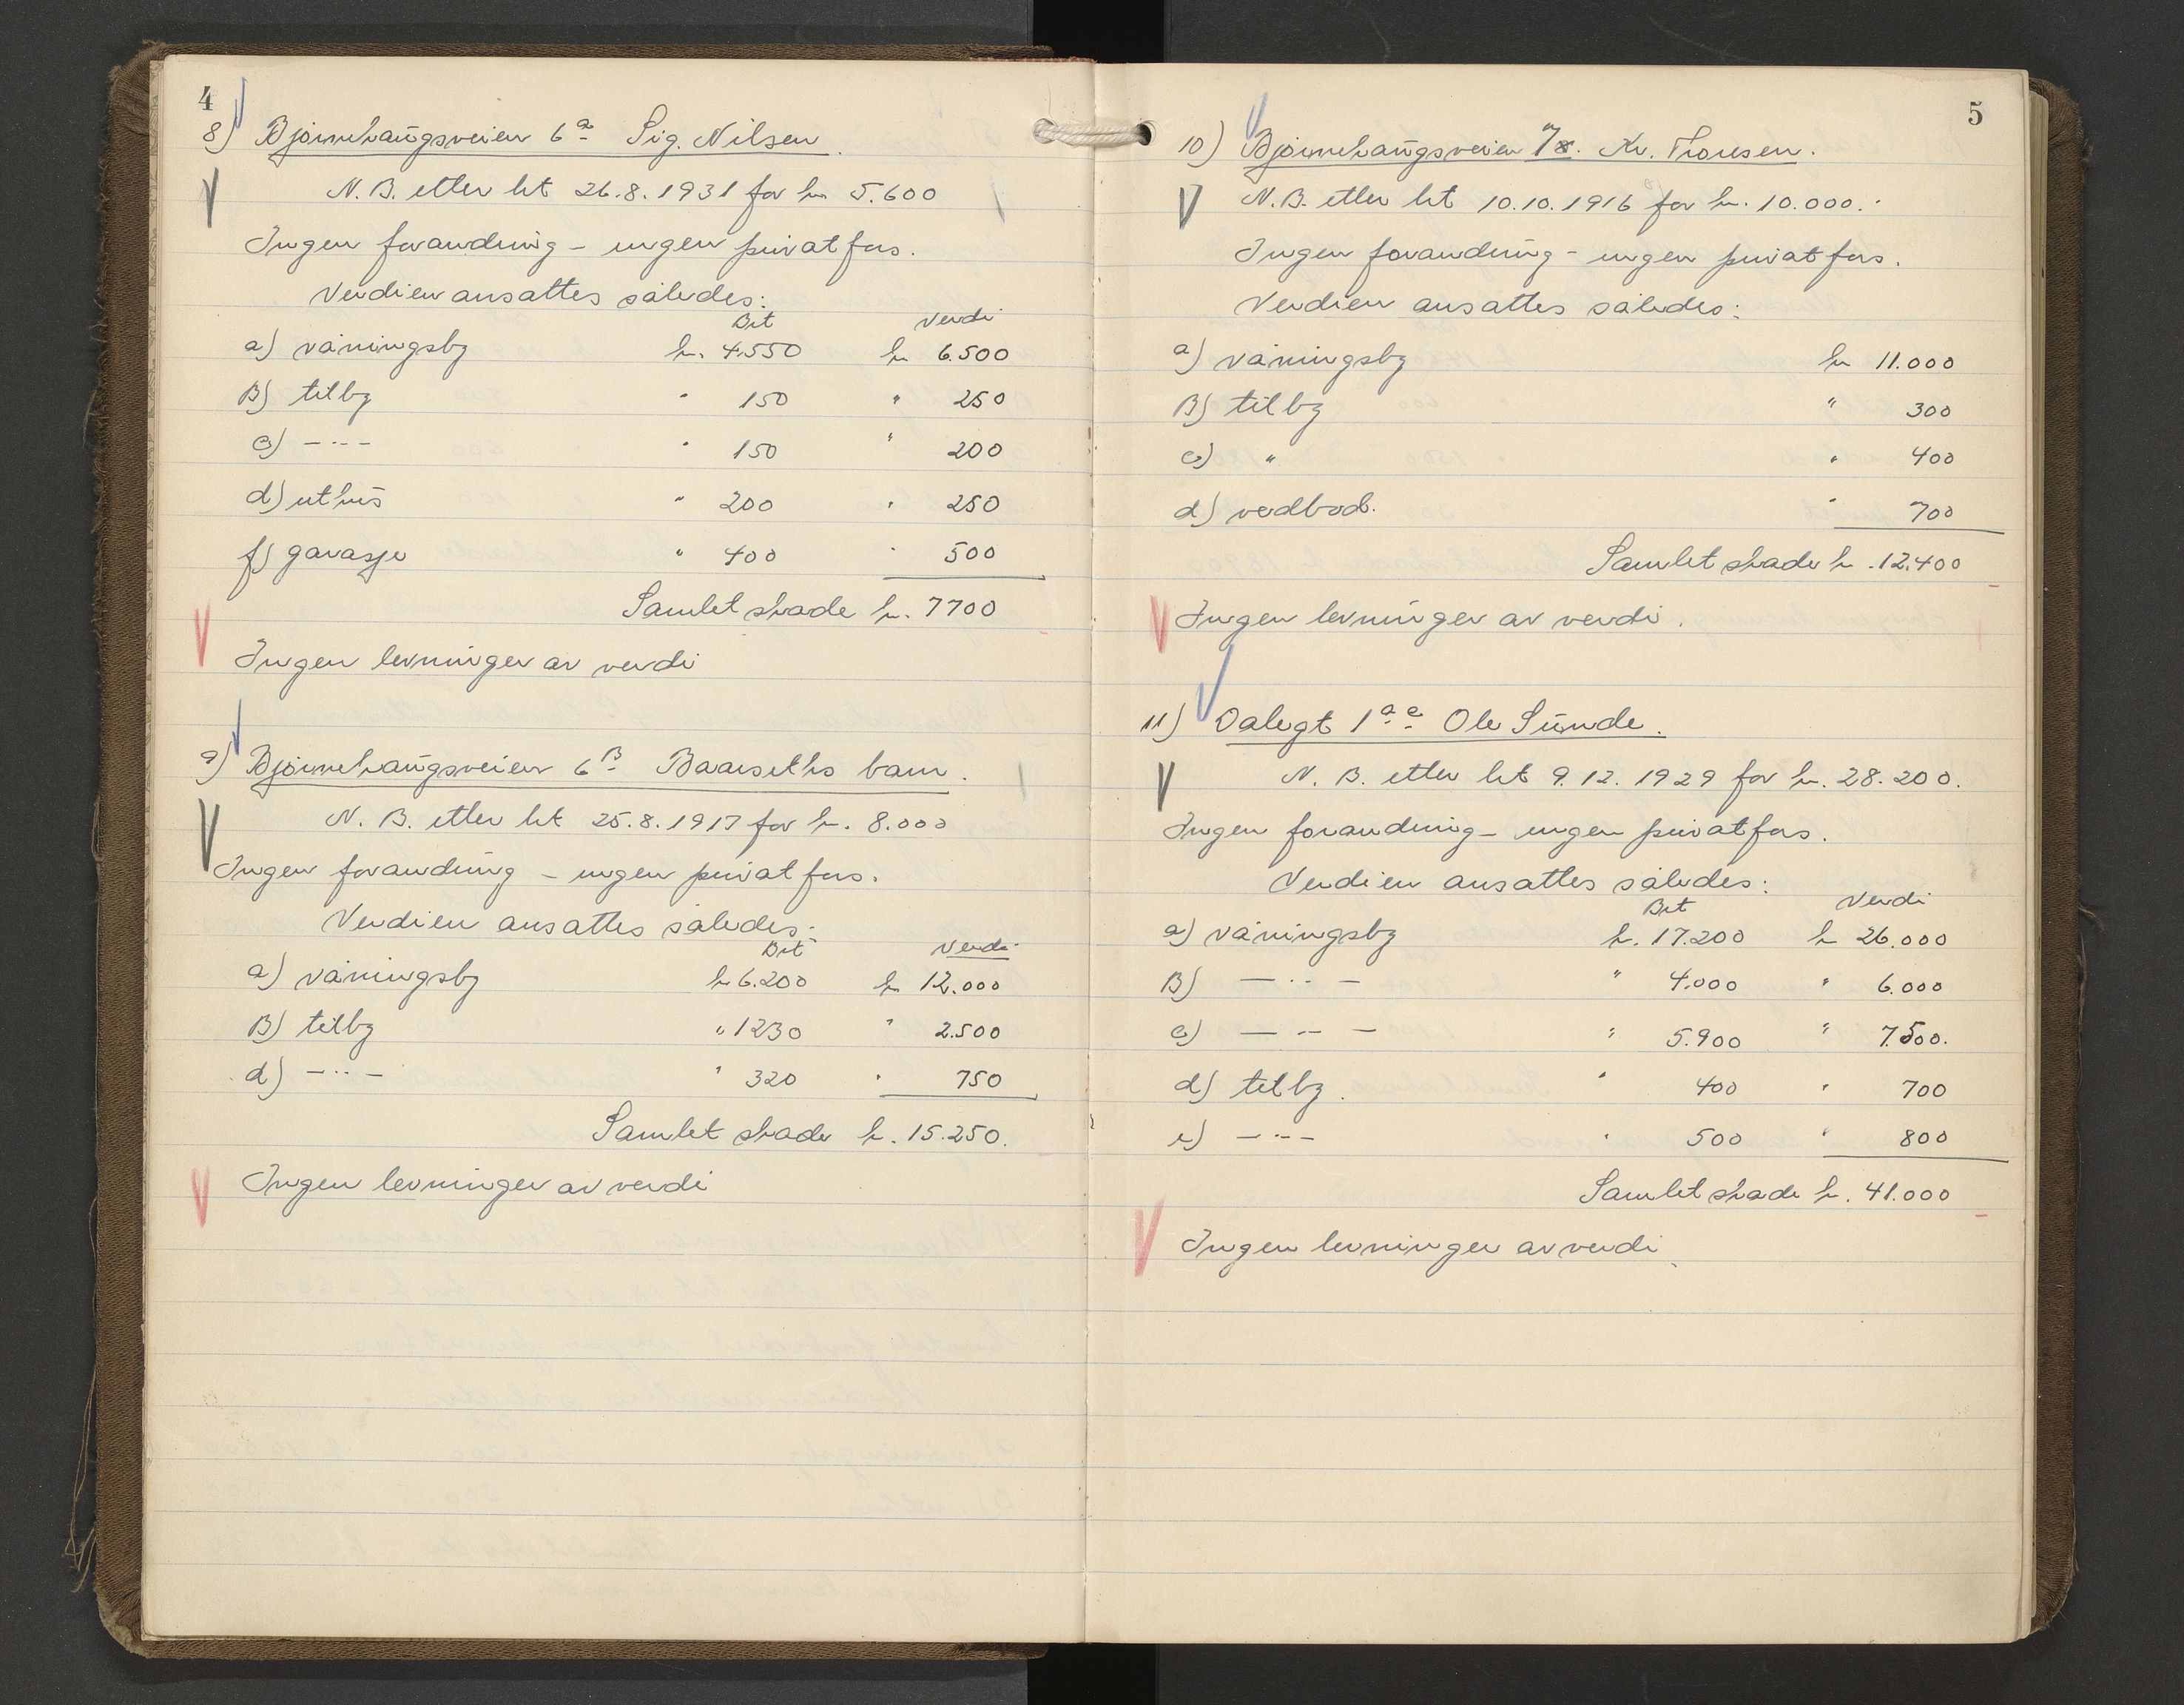 4
8) Bjørnehaugsveien 6a Sig. Nilsen.
N. B. etter bet 26.8.1931 for kr. 5.600
Ingen forandring - ingen privat fors.
Verdien ansattes således:
Bet Verdi
a) våningsby kr. 4.550 kr 6.500
B) tilby " 150 " 250
c) -"- " 150 " 200
d) uthus " 200 " 250
f) garasje " 400 " 500
Samlet skade kr. 7700
Ingen levninger av verdi
9) Bjørnehaugsveien 6B Baarseths barn.
N. B. etter bet 25.8.1917 for kr. 8.000
Ingen forandring - ingen privat fors.
Verdien ansattes således:
Bet Verdi
a) våningsby kr 6.200 kr 12.000
B) tilby " 1230 " 2.500
d) -"- " 320 " 750
Samlet skade kr. 15.250.
Ingen levninger av verdi
5
10) Bjørnehaugsveien 7. Kr. Thoresen.
N. B. etter bet 10.10.1916 for kr. 10.000.
Ingen forandring - ingen privat fors.
Verdien ansattes således:
a) våningsby kr 11.000
B) tilby " 300
c) " " 400
d) vedbod. " 700
Samlet skade kr. 12.400
Ingen levninger av verdi.
11) Dalegt 1a Ole Sunde.
N. B. etter bet 9.12.1929 for kr. 28.200.
Ingen forandring - ingen privat fors.
Verdien ansattes således:
Bet Verdi
a) våningsby kr. 17.200 kr 26.000
B) -"- " 4.000 " 6.000
c) -"- " 5.900 " 7.500.
d) tilby. " 400 " 700
e) -"- " 500 " 800
Samlet skade kr. 41.000
Ingen levninger av verdi